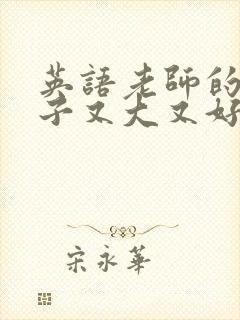 英語老師的
子又大又好
宋永華